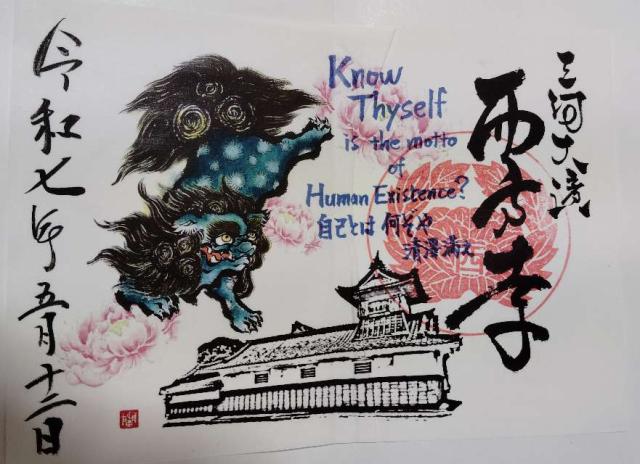 三河大濱
西方寺
Know
Thyself
is the motto
of
Human Existence?
自己とは何ぞや
清澤満之
令和七年五月十二日